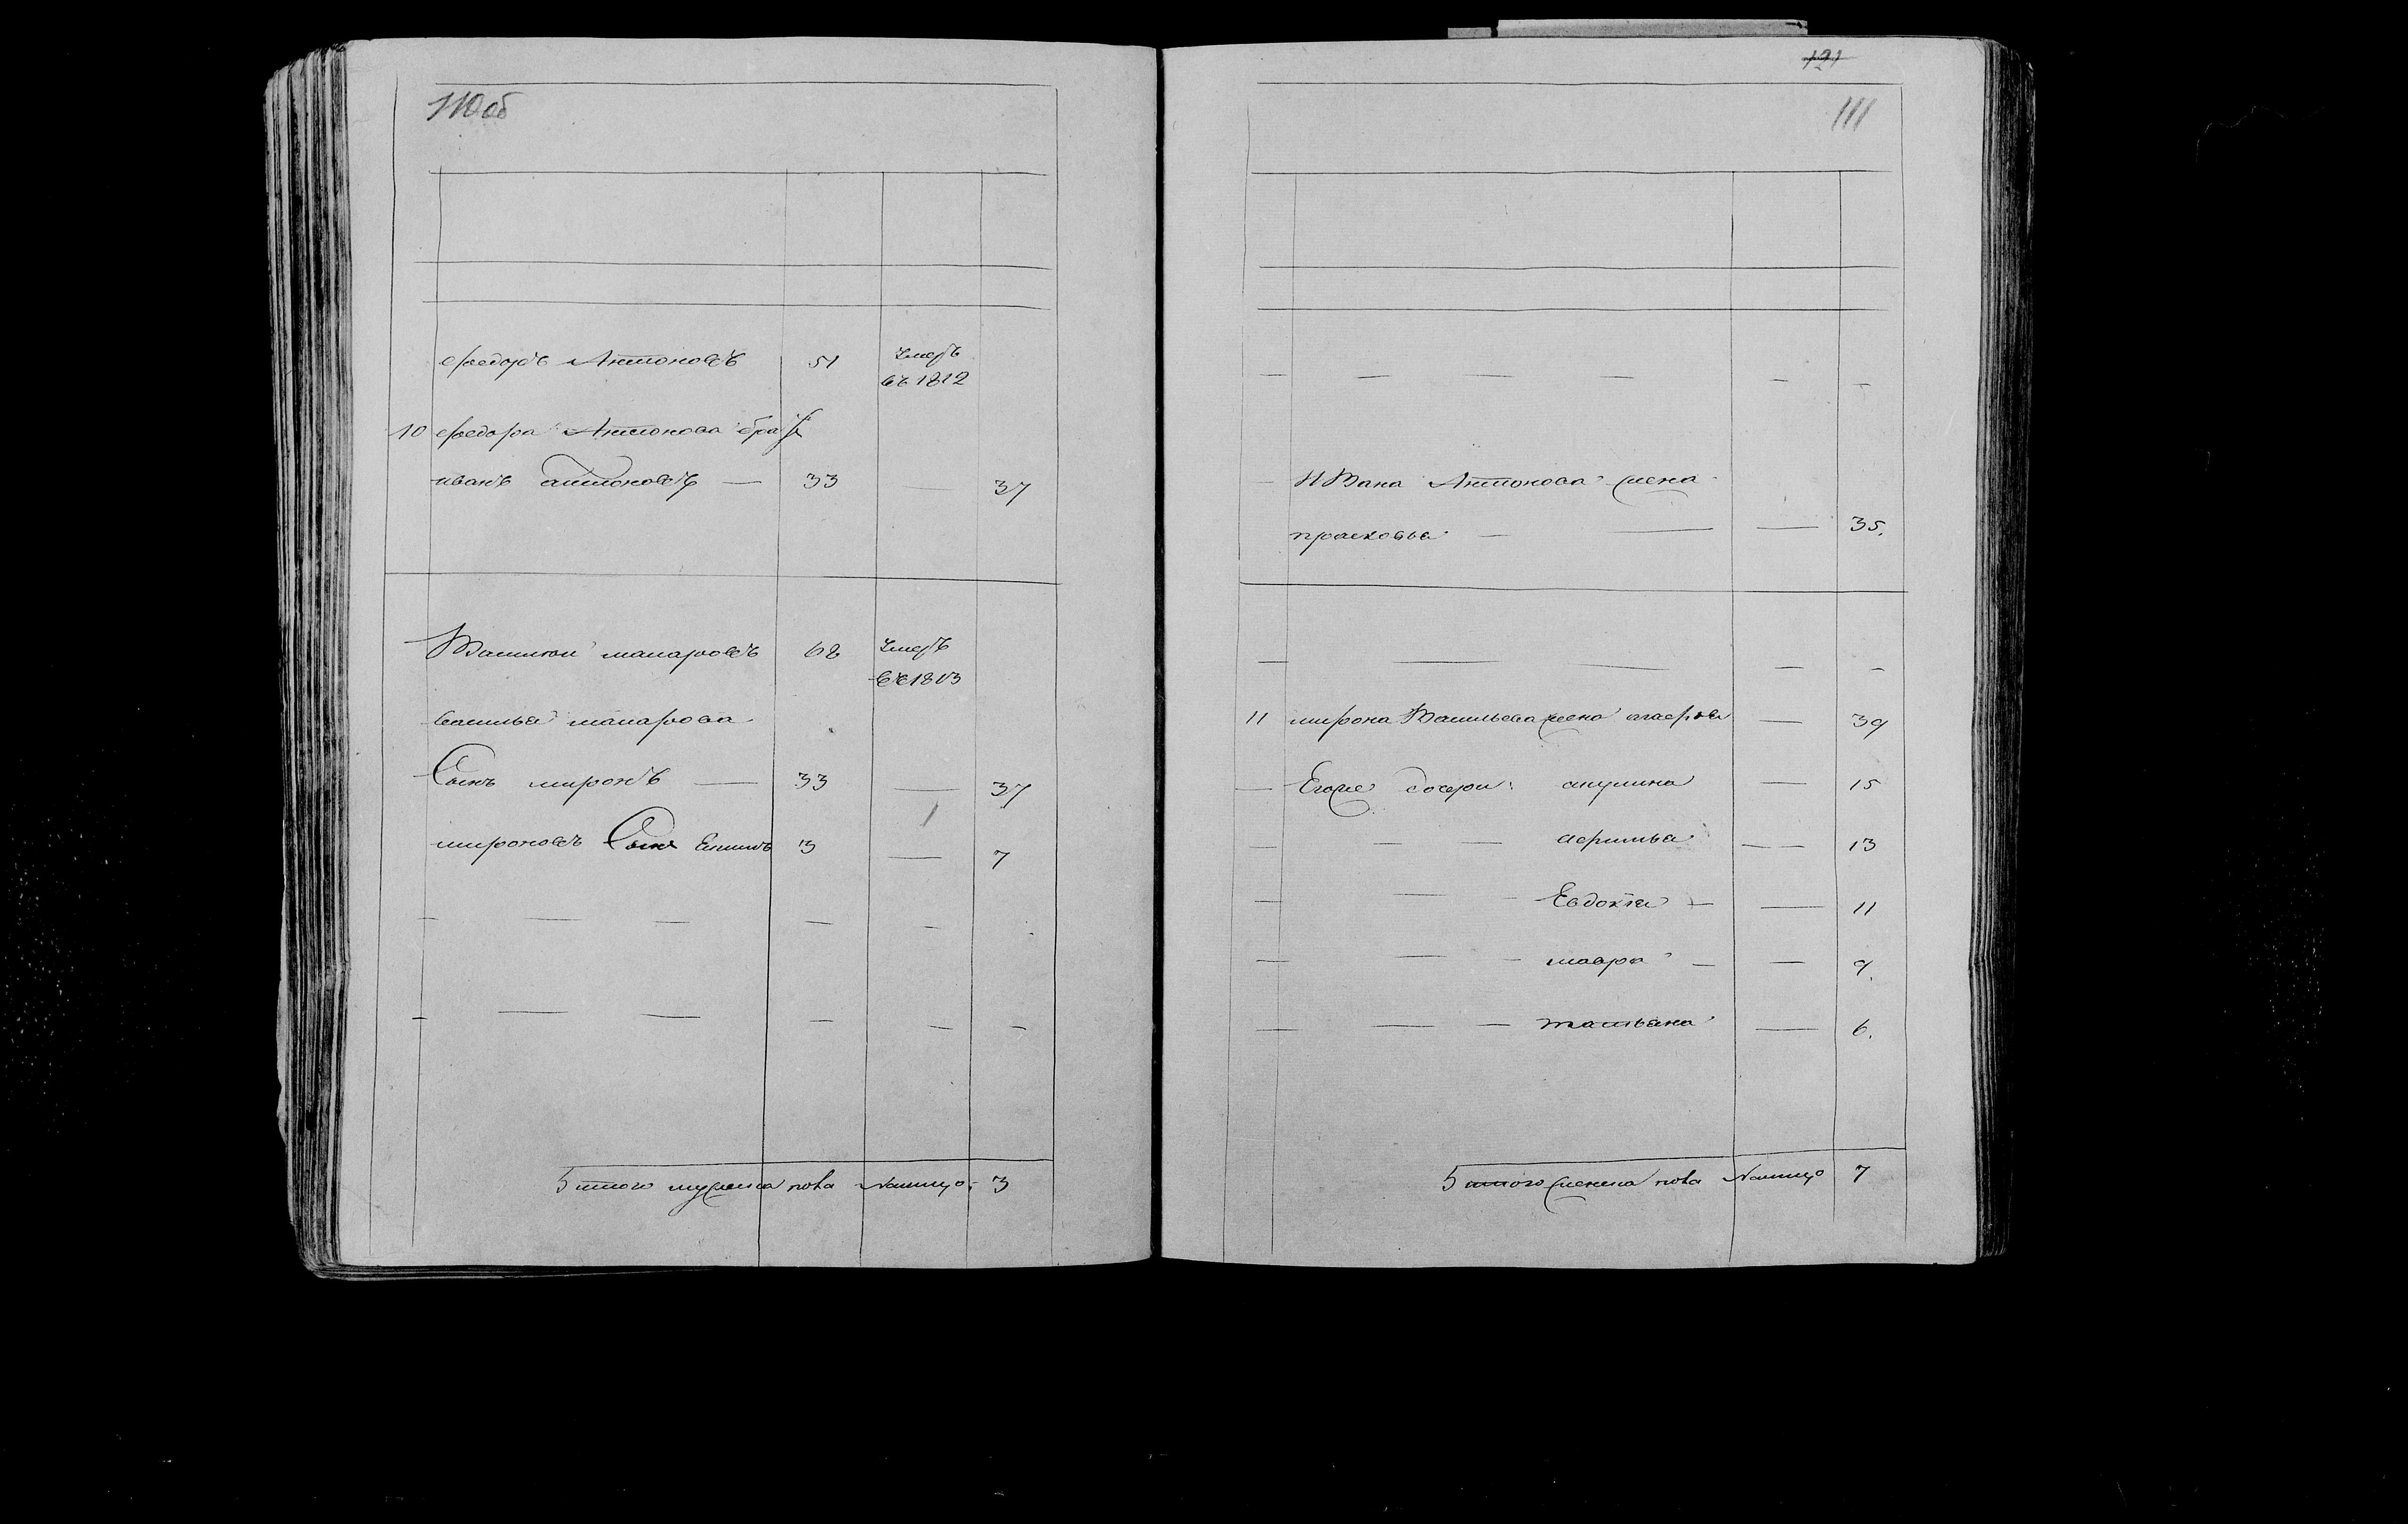 110об
Федоръ Антоновъ 51 Умеръ
въ 1812
10 Федора Антонова братъ
иванъ антоновъ — 33 — 37
Василеи макаровъ 68 Умеръ
въ 1813
василья макарова
Сынъ миронъ — 33 — 37
мироновъ Сынъ 3 — 7
Итого мужеска пола Налицо 3
121
111
Ивана Антонова жена
прасковья — — — 35.
11 мирона Васильева жена — 39
Егоже дочери акулина — 15
— — — афимья — 13
— — — Евдокія — — 11
— — — мавра — — 9.
— — — татьяна — 6.
Итого женска пола Налицо 7